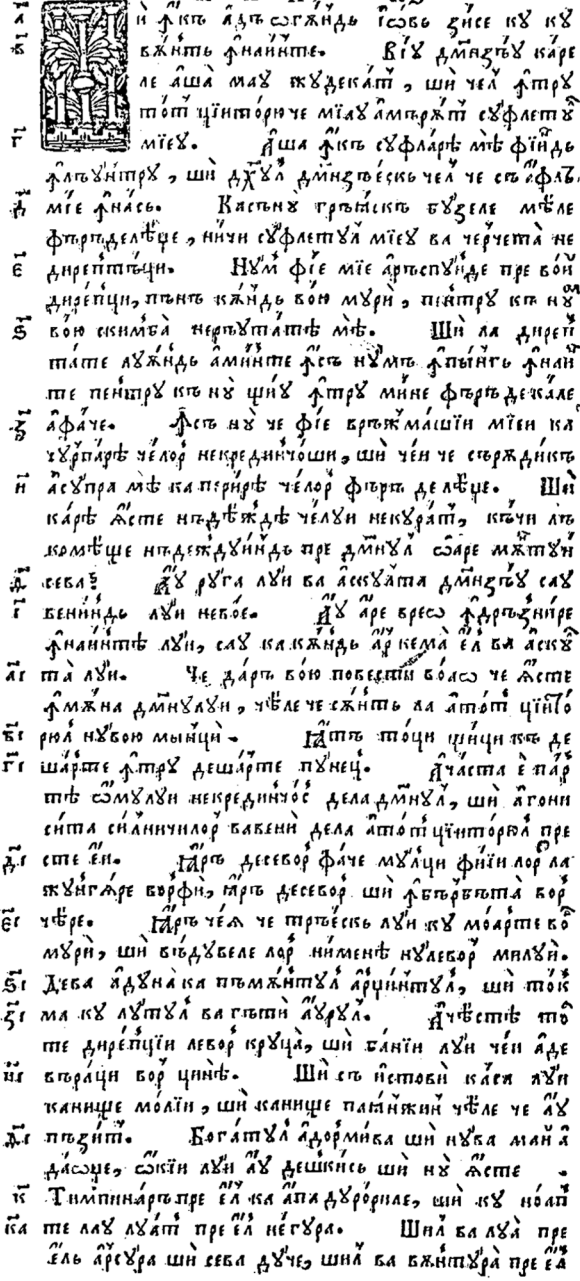 а҃ Ші ꙟкъ адъѡгѫндь Іѡвь зисе кꙋ кꙋ
в҃ вѫнть ꙟнаинте. Вїꙋ Дмнзѣꙋ каре
ле аша маꙋ жꙋдекат, ши чел ꙟтрꙋ
тот цїиторюче мїаꙋ амърѫт сꙋфлетꙋ
г҃ мїеꙋ. Аша ꙟкъ сꙋфларѣ мѣ фїинд
ꙟлъꙋнтрꙋ, ши дхꙋл дмнзъеск чел че съ афлъ
д҃ мїе ꙟнась. Касънꙋ грѣаскъ бꙋзеле мѣле
фъръделѣџе, ничи сꙋфлетꙋл мїеꙋ ва черчета не
е҃ дирептъци. Нꙋм фїе мїе аръспꙋнде пре вои
дирепци, пънъ кѫнд вою мꙋри, пентрꙋ къ нꙋ
ѕ҃ вою скимба неръꙋтатѣ мѣ. Ши ла дирепт
тате лꙋѫнд аминте ꙟсъ нꙋмъ ꙟпынгь ꙟнаин
те пентрꙋ къ нꙋ щиꙋ ꙟтрꙋ мине фъръ де кале
з҃ афаче. ꙟсъ нꙋ че фїе врѫжмашїи мїеи ка
чꙋрпарѣ челор некрединчоши, ши чеи че сърѫдикъ
и҃ асꙋпра мѣ ка перирѣ челор фъръ де лѣџе. Ши
карѣ ѩсте нъдѣждѣ челꙋи некꙋрат, къчи лъ
комѣще нъдеждꙋинд пре дмнꙋл ѡаре мѫнтꙋи
ѳ҃ сева; Аꙋ рꙋга лꙋи ва аскꙋлта дмнзѣꙋ саꙋ
і҃ вениндь лꙋи невое. Аꙋ аре вреѡ ꙟдръзнире
ꙟнаинтѣ лꙋи, саꙋ ка кѫнд ар кема ел ва аскꙋл
аі҃ та лꙋи. Че даръ вою повести воаѡ че ѩсте
ꙟмѫна дмнꙋлꙋи, чѣле че сѫнть ла атот цїито
ві҃ рюл нꙋвою мынци. Ꙗтъ тоци щици къ де
гі҃ шарте ꙟтрꙋ дешарте пꙋнец. Ачаста е пар
тѣ ѡмꙋлꙋи некрединчос дела дмнꙋл, ши агони
сита силничилор вавени дела атотцїиторюл пре
ді҃ сте еи. Ꙗръ десевор фаче мꙋлци фїии лор ла
жꙋнгѧре ворфи, ꙗръ десевор ши ꙟбърбъта вор
еі҃ чѣре. Ꙗръ чеѧ че тръеск лꙋи кꙋ моарте вор
мꙋри, ши въдꙋвеле лор нименѣ нꙋлевор милꙋи.
ѕі҃ Дева адꙋна ка пъмѫнтꙋл арџинтꙋл, ши ток
зі҃ ма кꙋ лꙋтꙋл ва гъти аꙋрꙋл. Ачѣстѣ то
те дирепцїи левор крꙋца, ши банїи лꙋи чеи аде
иі҃ въраци вор цинѣ. Ши съ истови каса лꙋи
канище молїи, ши канище паинжин чѣле че аꙋ
ѳі҃ пъзит. Богатꙋл адормива ши нꙋва май а
даѡџе, ѡкїи лꙋи аꙋ дешкись ши нꙋ ѩсте.
к҃ Тимпинаръ пре ел ка апа дꙋрориле, ши кꙋ ноап
ка҃ те лаꙋ лꙋат пре ел негꙋра. Шил ва лꙋа пре
ель арсꙋра ши сева дꙋче, шил ва вѫнтꙋра пре ел